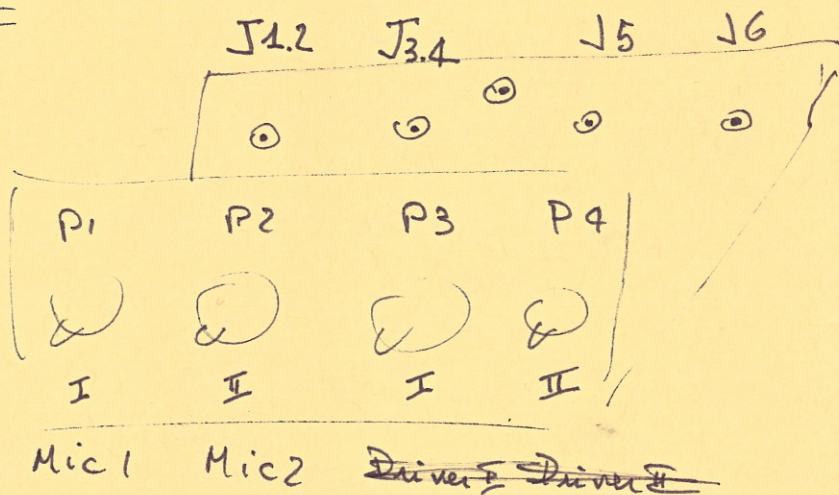 J1.2 J3.4 J5 J6
P1 P2 P3 P4
I II I II
Mic1 Mic2 Driver I Driver II